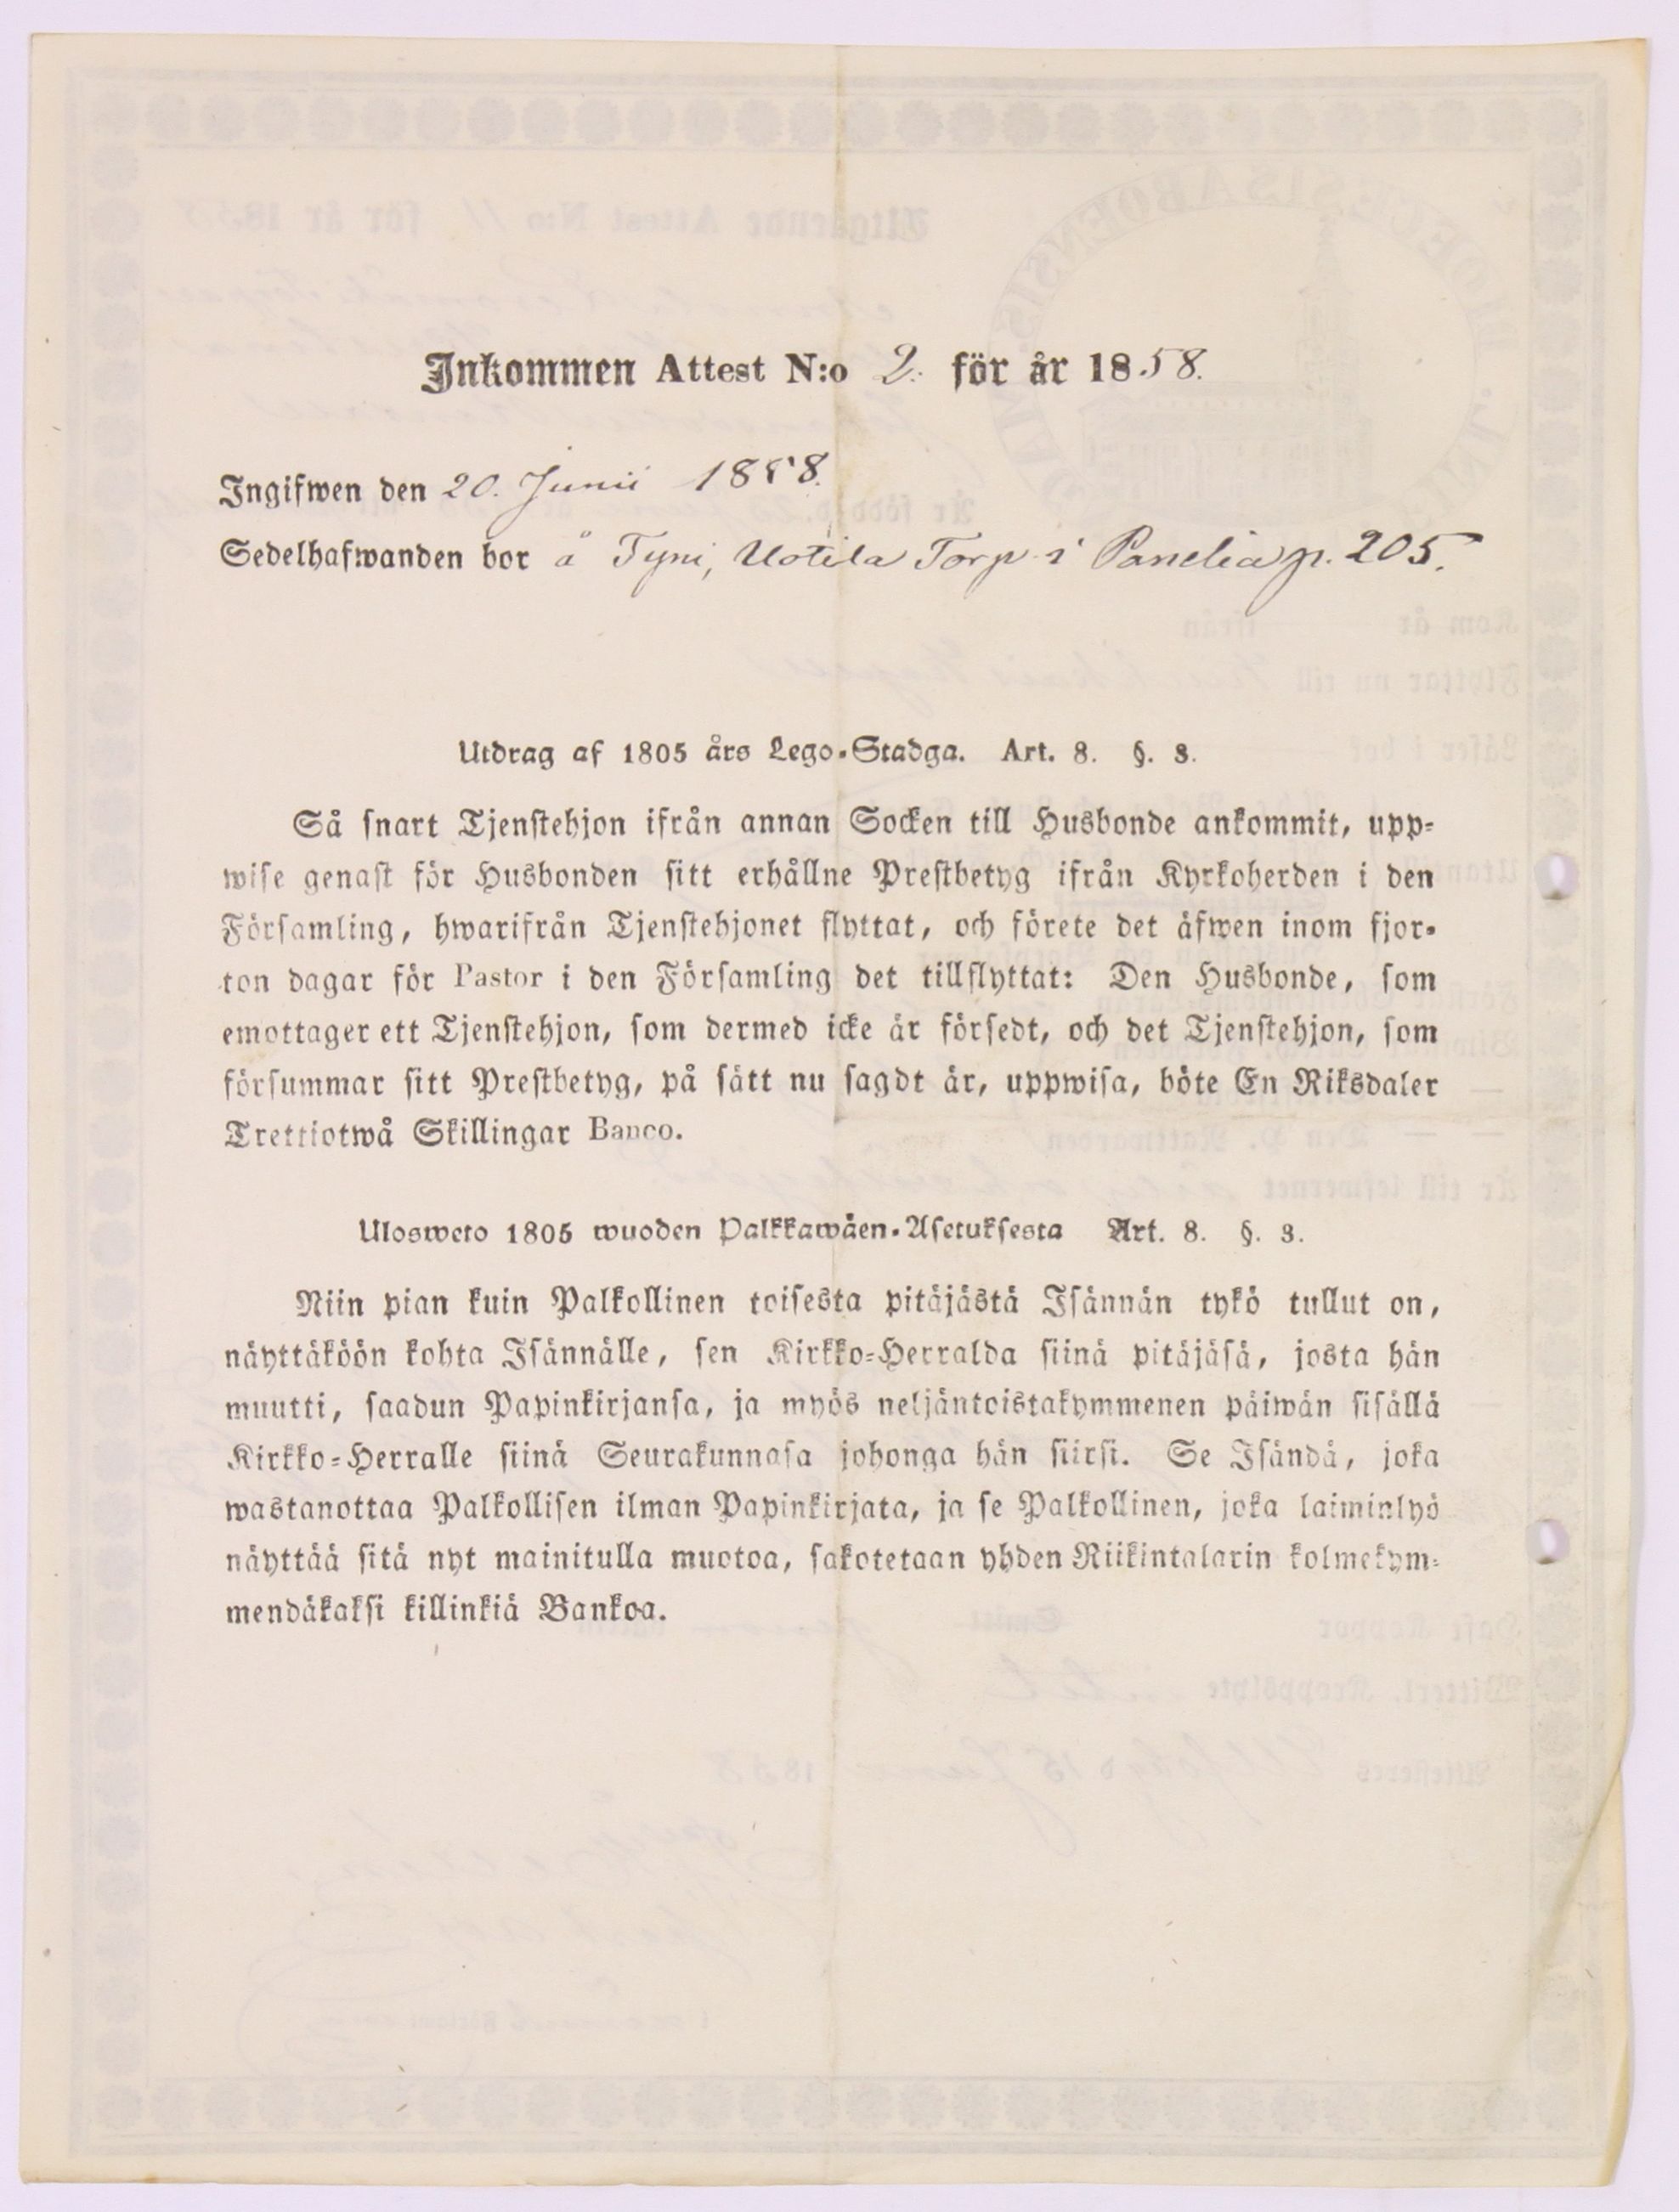 Inkommen Attest N:o 2. för år 1858.
Ingifwen den 20. Junii 1858.
Sedelhafwanden bor å Tyni, Uotila Torp i Panelia p. 205.
Utdrag af 1805 års Lego-Stadga. Art. 8. §. 3.
Så snart Tjenstehjon ifrån annan Socken till Husbonde ankommit, upp-
wise genast för Husbonden sitt erhållne Prestbetyg ifrån Kyrkoherden i den
Församling, hwarifrån Tjenstehjonet flyttat, och förete det äfwen inom fjor-
ton dagar för Pastor i den Församling det tillflyttat: Den Husbonde, som
emottager ett Tjenstehjon, som dermed icke är försedt, och det Tjenstehjon, som
försummar sitt Prestbetyg, på sätt nu sagdt är, uppwisa, böte En Riksdaler
Trettiotwå Skillingar Banco.
Ulosweto 1805 wuoden Palkkawäen-Asetuksesta Art. 8. §. 3.
Niin pian kuin Palkollinen toisesta pitäjästä Isännän tykö tullut on,
näyttäköön kohta Isännälle, sen Kirkko-Herralda siinä pitäjäsä, josta hän
muutti, saadun Papinkirjansa, ja myös neljäntoistakymmenen päiwän sisällä
Kirkko-Herralle siinä Seurakunnasa johonga hän siirsi. Se Isändä, joka
wastanottaa Palkollisen ilman Papinkirjata, ja se Palkollinen, joka laiminlyö
näyttää sitä nyt mainitulla muotoa, sakotetaan yhden Riikintalarin kolmekym-
mendäkaksi killinkiä Bankoa.